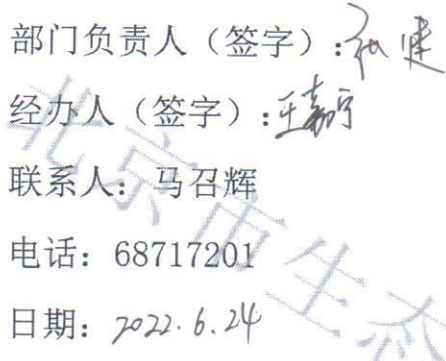 部门负责人（签字）：张健
经办人（签字）：王嘉宇
联系人： 马召辉
电话：68717201
日期：2022.6.24
北京市生态